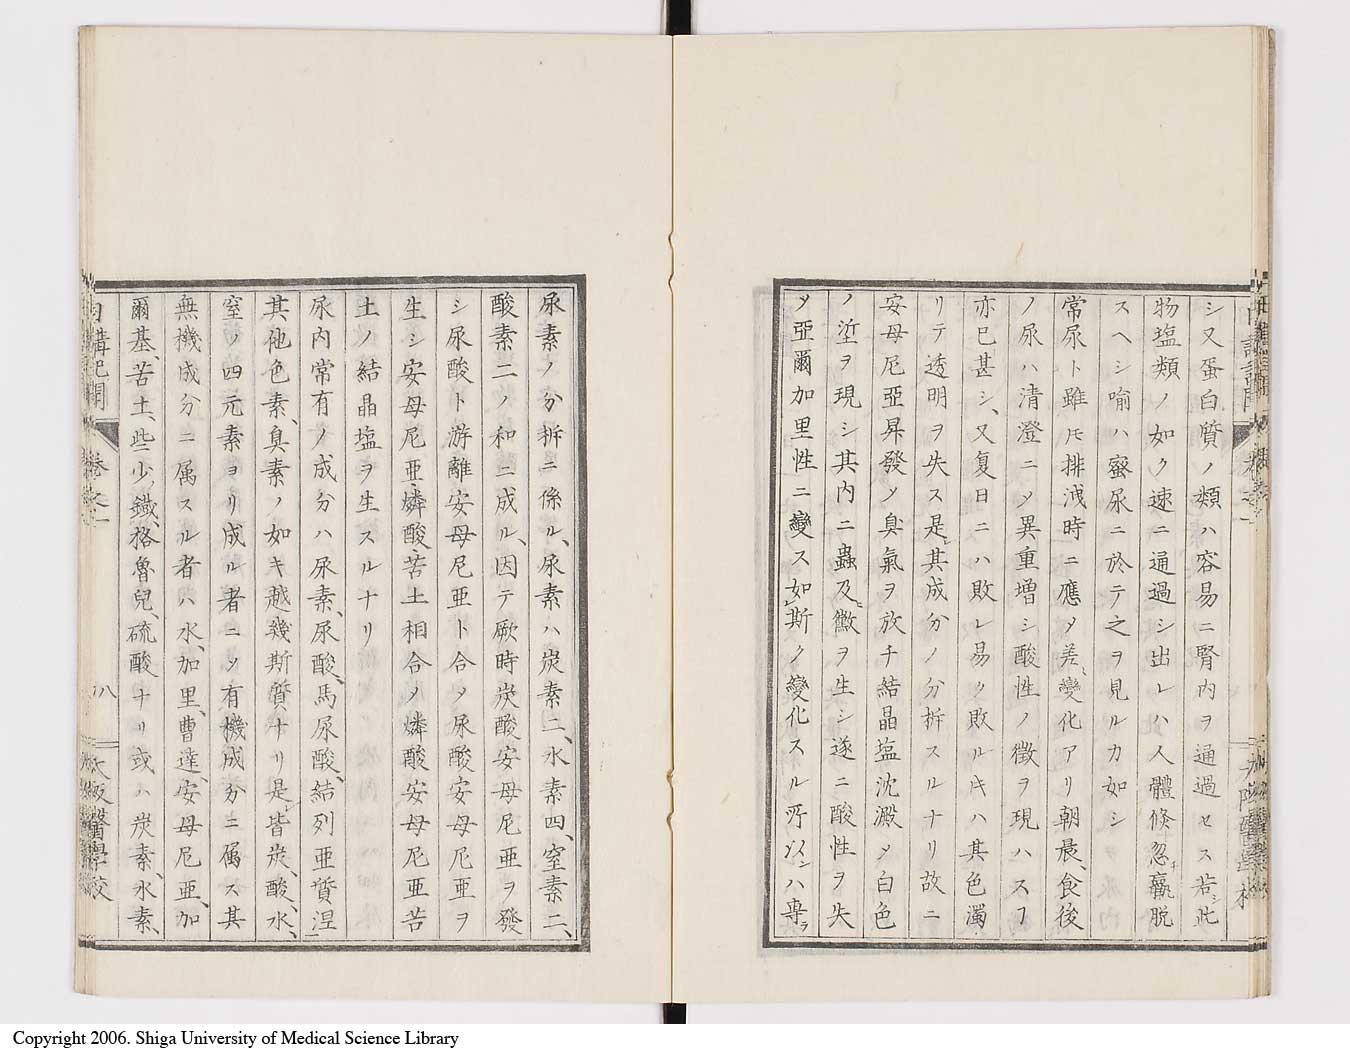 シ又蛋白質ノ類ハ容易ニ腎内ヲ通過セス若シ此
物塩類ノ如ク速ニ通過シ出レハ人體倏忽チ羸脱
スヘシ喻ハ蜜尿ニ於テ之ヲ見ルカ如シ
常尿ト雖モ排泄時ニ應メ差變化アリ朝晨、食後
ノ尿ハ清澄ニメ異重増シ酸性ノ徴ヲ現ハスヿ
亦已甚シ、又夏日ニハ敗レ易ク敗ルキハ其色濁
リテ透明ヲ失ス是レ其成分ノ分拆スルナリ故ニ
安母尼亞昇發メ臭氣ヲ放チ結晶塩沈澱メ白色
ノ垽ヲ現シ其内ニ蟲及ヒ黴ヲ生シ遂ニ酸性ヲ失
メ亞爾加里性ニ變ス如斯ク變化スル所以ンハ専ラ
尿素ノ分拆ニ係ル、尿素ハ炭素二、水素四、窒素二、
酸素二ノ和ニ成ル、因テ厥時炭酸安母尼亜ヲ發
シ尿酸ト游離安母尼亜ト合メ尿酸安母尼亜ヲ
生シ安母尼亜、燐酸、苦土相合メ燐酸安母尼亜苦
土ノ結晶塩ヲ生スルナリ
尿内常有ノ成分ハ尿素、尿酸、馬尿酸、結列亜質涅
其他色素、臭素ノ如キ越幾斯質ナリ是レ皆炭、酸、水、
窒ノ四元素ヨリ成ル者ニメ有機成分ニ属ス其
無機成分ニ属スル者ハ水、加里、曹達、安母尼亜、加
爾基、苦土、些少ノ鐵、格魯兒、硫酸ナリ或ハ炭素、水素、
日講記聞 卷之一
八
大阪醫學校